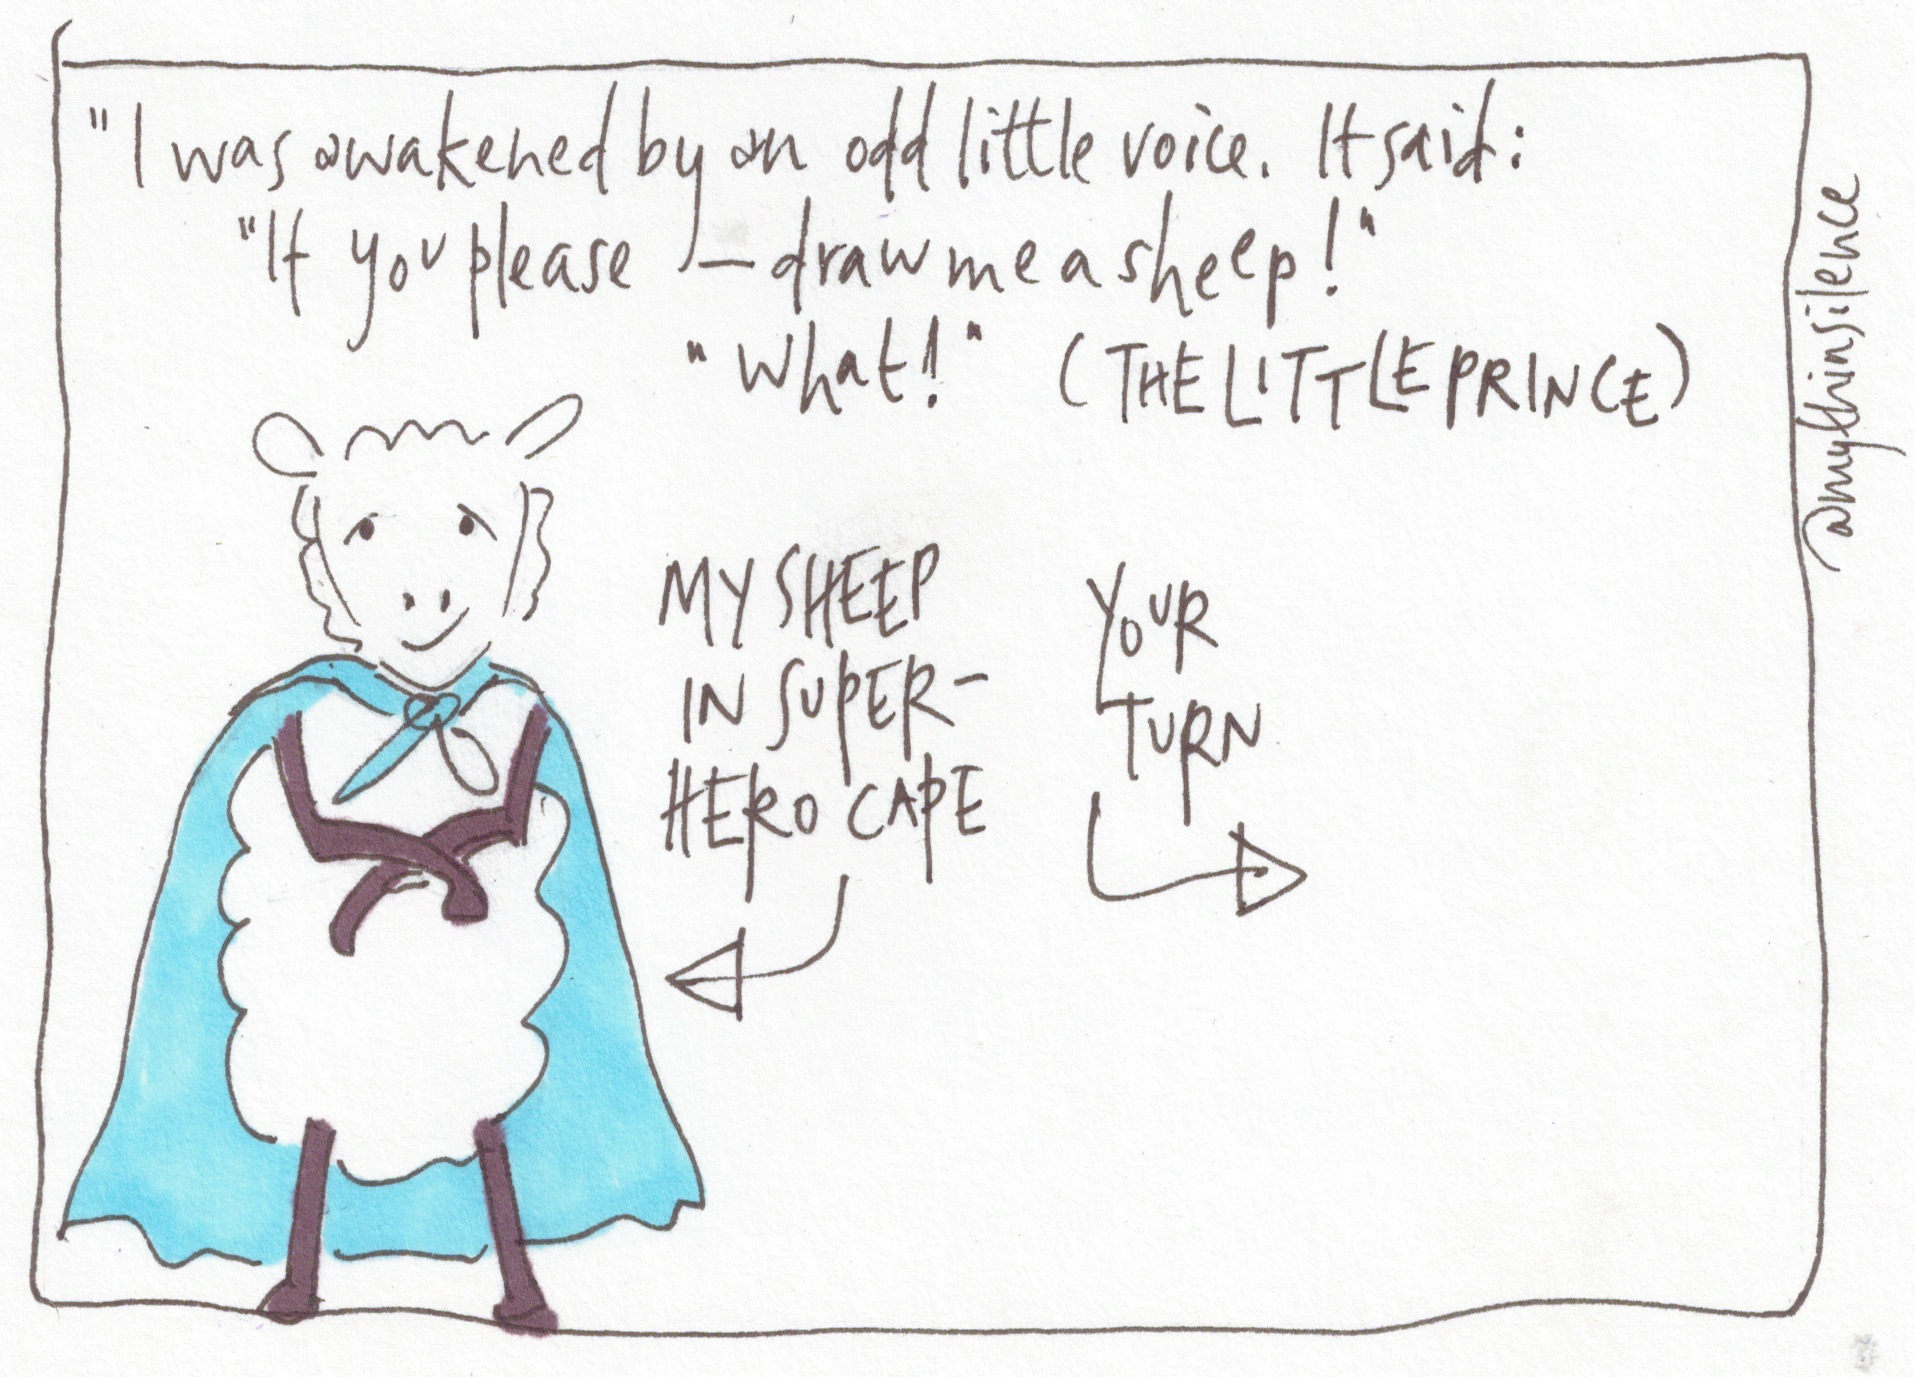 "I was awakened by an odd little voice. It said:
"If you please – draw me a sheep!"
"What!" (THE LITTLE PRINCE)
MY SHEEP
IN SUPER-
HERO CAPE
YOUR
TURN
@mythinsilence